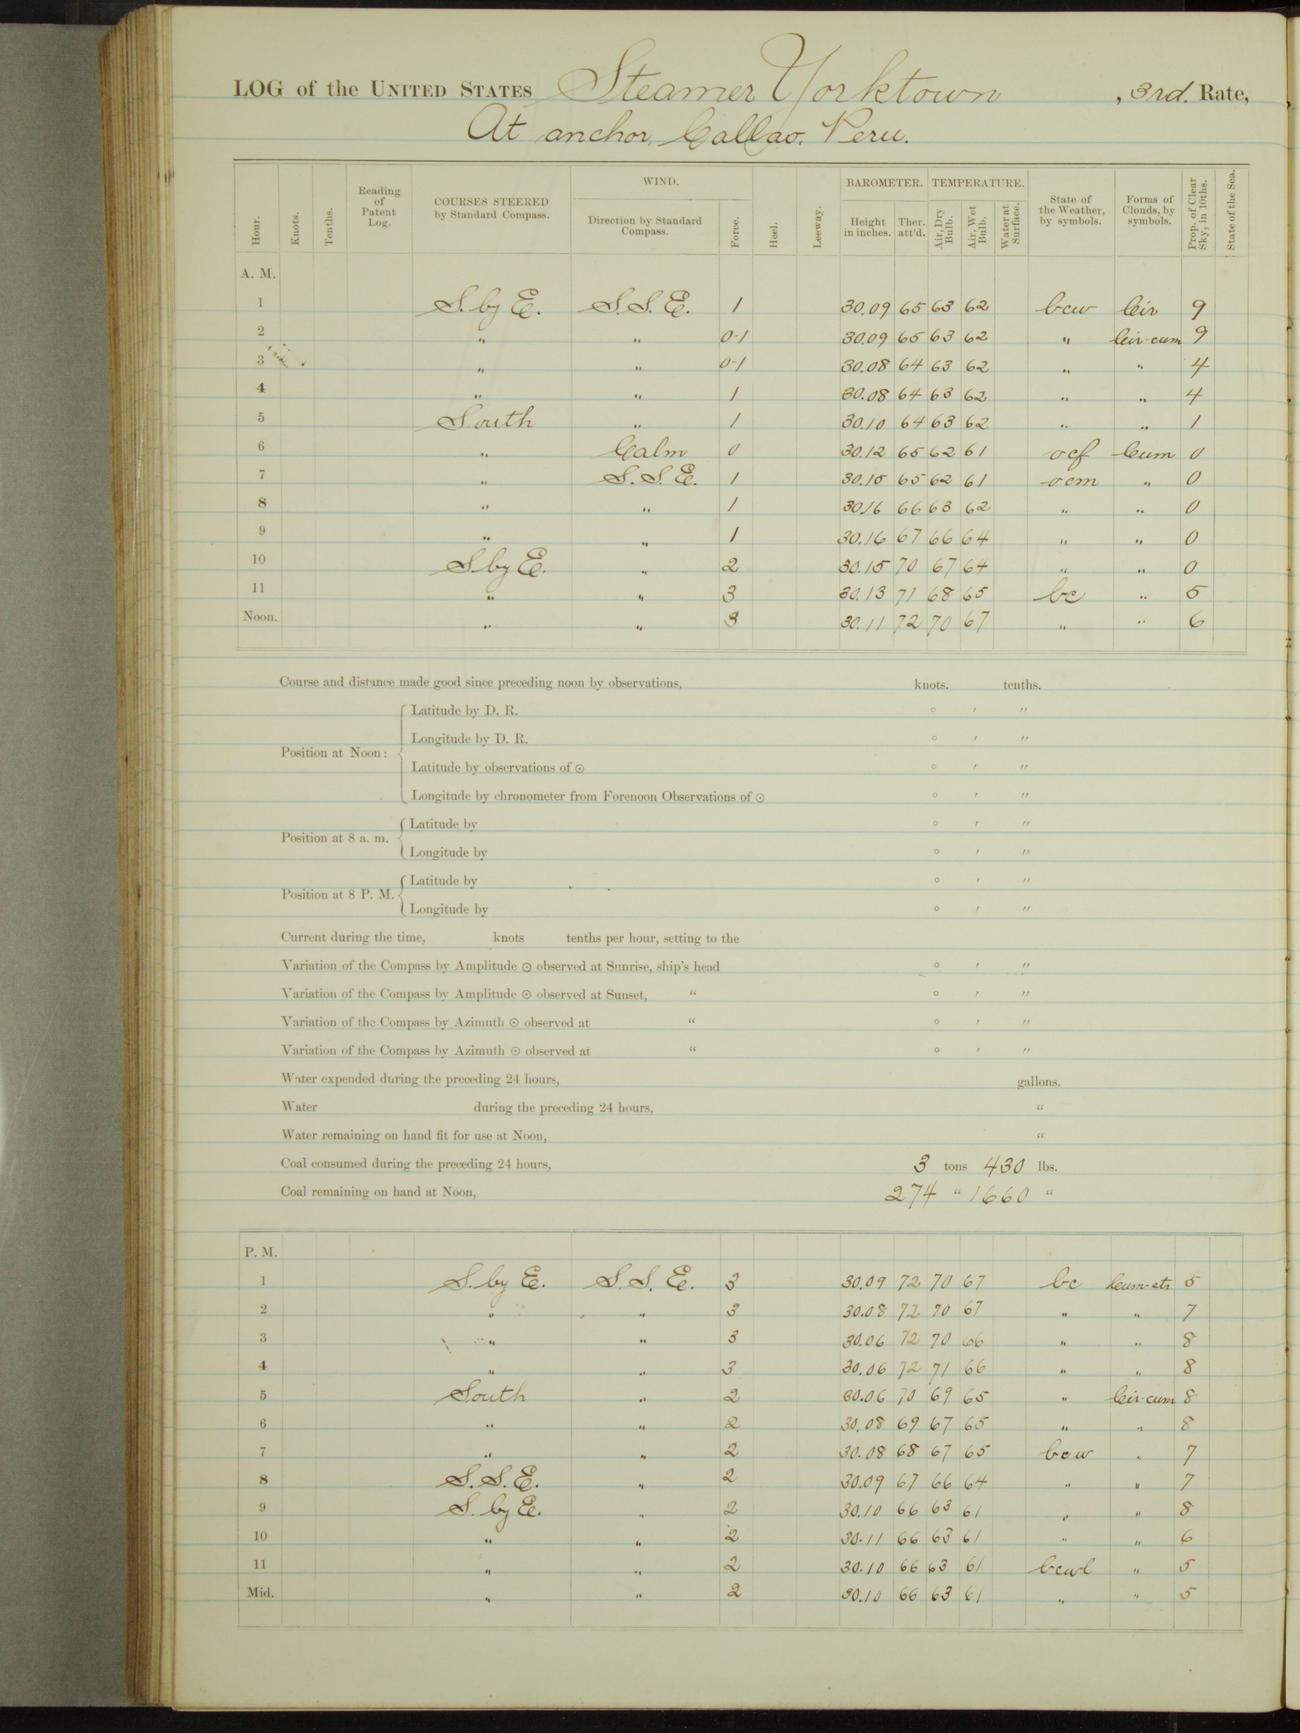 LOG of the UNITED STATES Steamer Yorktown, 3rd. Rate,
At anchor, Callao, Peru.
Hour. Knots. Tenths. Reading of Patent Log. COURSES STEERED by Standard Compass. WIND. Direction by Standard Compass. Force. Heel. Leeway. BAROMETER. Height in inches. Ther. att'd. TEMPERATURE. Air, Dry Bulb. Air, Wet Bulb. Water at Surface. State of the Weather, by symbols. Forms of Clouds, by symbols. Prop. of Clear Sky, in 10ths. State of the Sea.
A. M.
1 S. by E. S.S.E. 1 30.09 65 63 62 bcw Cir. 9
2 " " 0-1 30.09 65 63 62 " Cir-cum 9
3 " " 0-1 30.08 64 63 62 " " 4
4 " " 1 30.08 64 63 62 " " 4
5 South " 1 30.10 64 63 62 " " 1
6 " Calm 0 30.12 65 62 61 ocf Cum 0
7 " S.S.E. 1 30.15 65 62 61 ocm " 0
8 " " 1 30.16 66 63 62 " " 0
9 " " 1 30.16 67 66 64 " " 0
10 S by E. " 2 30.15 70 67 64 " " 0
11 " " 3 30.13 71 68 65 bc " 5
Noon. " " 3 30.11 72 70 67 " " 6
Course and distance made good since preceding noon by observations, knots. tenths.
Position at Noon: Latitude by D. R. ° ′ ″
Longitude by D. R. ° ′ ″
Latitude by observations of ☉ ° ′ ″
Longitude by chronometer from Forenoon Observations of ☉ ° ′ ″
Position at 8 a. m. Latitude by ° ′ ″
Longitude by ° ′ ″
Position at 8 P. M. Latitude by ° ′ ″
Longitude by ° ′ ″
Current during the time, knots tenths per hour, setting to the
Variation of the Compass by Amplitude ☉ observed at Sunrise, ship's head ° ′ ″
Variation of the Compass by Amplitude ☉ observed at Sunset, " ° ′ ″
Variation of the Compass by Azimuth ☉ observed at " ° ′ ″
Variation of the Compass by Azimuth ☉ observed at " ° ′ ″
Water expended during the preceding 24 hours, gallons.
Water during the preceding 24 hours, "
Water remaining on hand fit for use at Noon, "
Coal consumed during the preceding 24 hours, 3 tons 430 lbs.
Coal remaining on hand at Noon, 274 " 1660 "
P. M.
1 S. by E. S.S.E. 3 30.09 72 70 67 bc Cum-str 5
2 " " 3 30.08 72 70 67 " " 7
3 " " 3 30.06 72 70 66 " " 8
4 " " 3 30.06 72 71 66 " " 8
5 South " 2 30.06 70 69 65 " Cir-cum 8
6 " " 2 30.08 69 67 65 " " 8
7 " " 2 30.08 68 67 65 bcw " 7
8 S.S.E. " 2 30.09 67 66 64 " " 7
9 S. by E. " 2 30.10 66 63 61 " " 8
10 " " 2 30.11 66 63 61 " " 6
11 " " 2 30.10 66 63 61 bcwl " 5
Mid. " " 2 30.10 66 63 61 " " 5